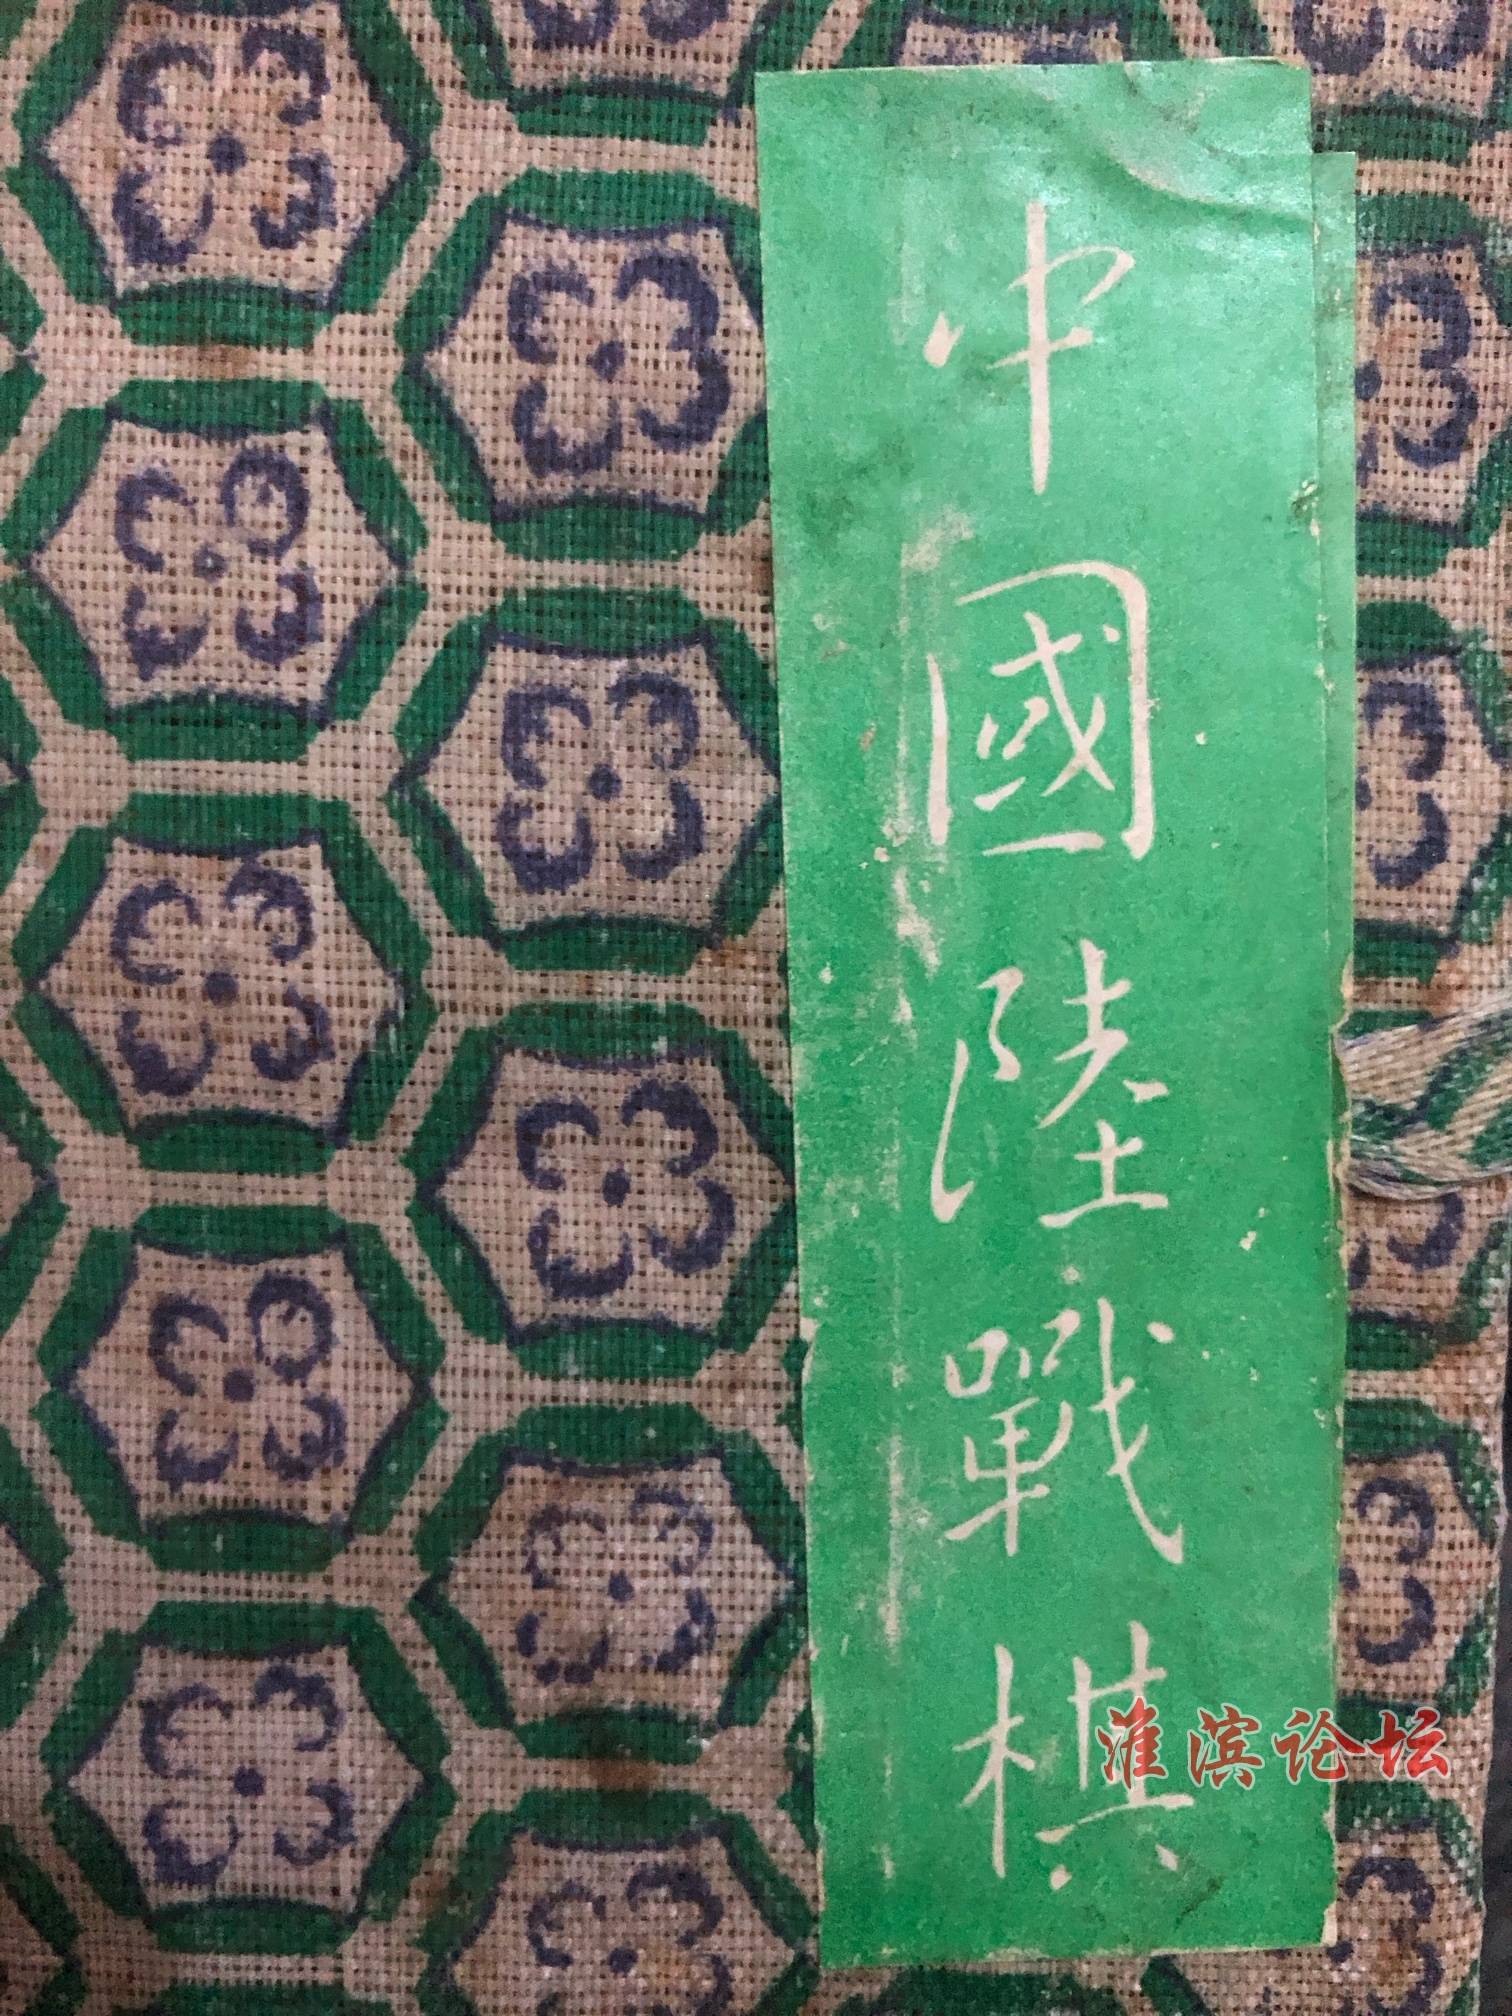 中國陸戰棋
淮滨论坛